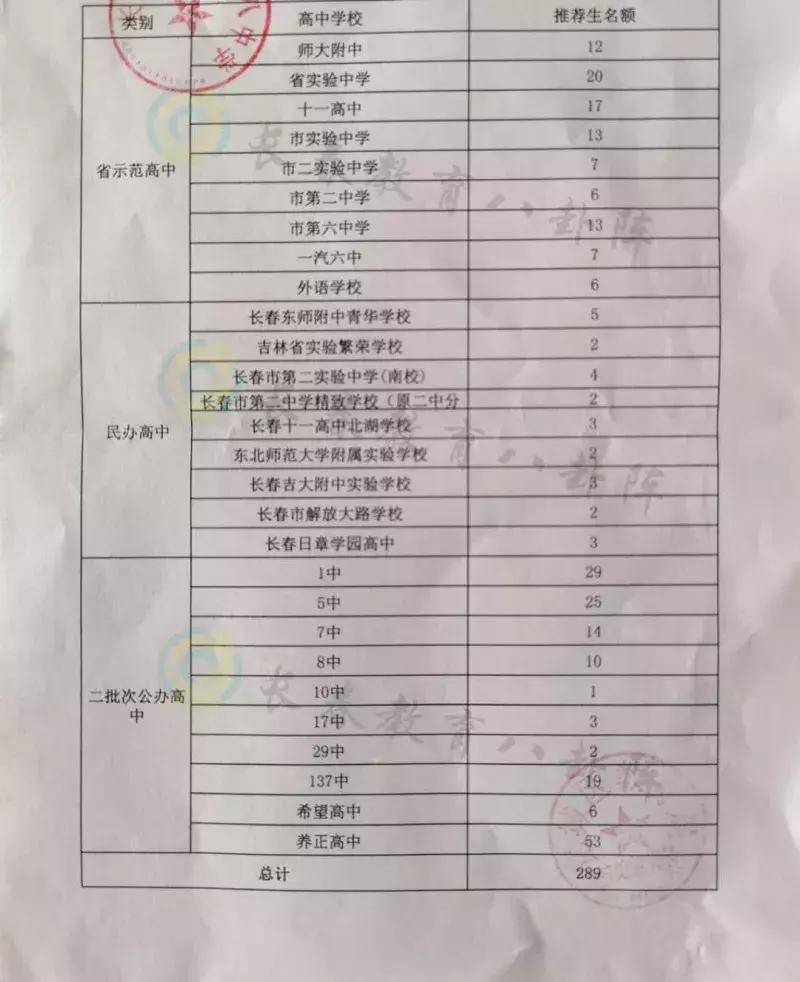 类别 高中学校 推荐生名额
师大附中 12
省实验中学 20
十一高中 17
市实验中学 13
省示范高中 市二实验中学 7
市第二中学 6
市第六中学 13
一汽六中 7
外语学校 6
长春东师附中青华学校 5
吉林省实验繁荣学校 2
长春市第二实验中学(南校) 4
长春市第二中学精致学校（原二中分 2
民办高中 长春十一高中北湖学校 3
东北师范大学附属实验学校 2
长春吉大附中实验学校 3
长春市解放大路学校 2
长春日章学园高中 3
1中 29
5中 25
7中 14
8中 10
二批次公办高
中
10中 1
17中 3
29中 2
137中 19
希望高中 6
养正高中 53
总计 289
长春教育八卦阵
长春教育八卦阵
长春教育八卦阵